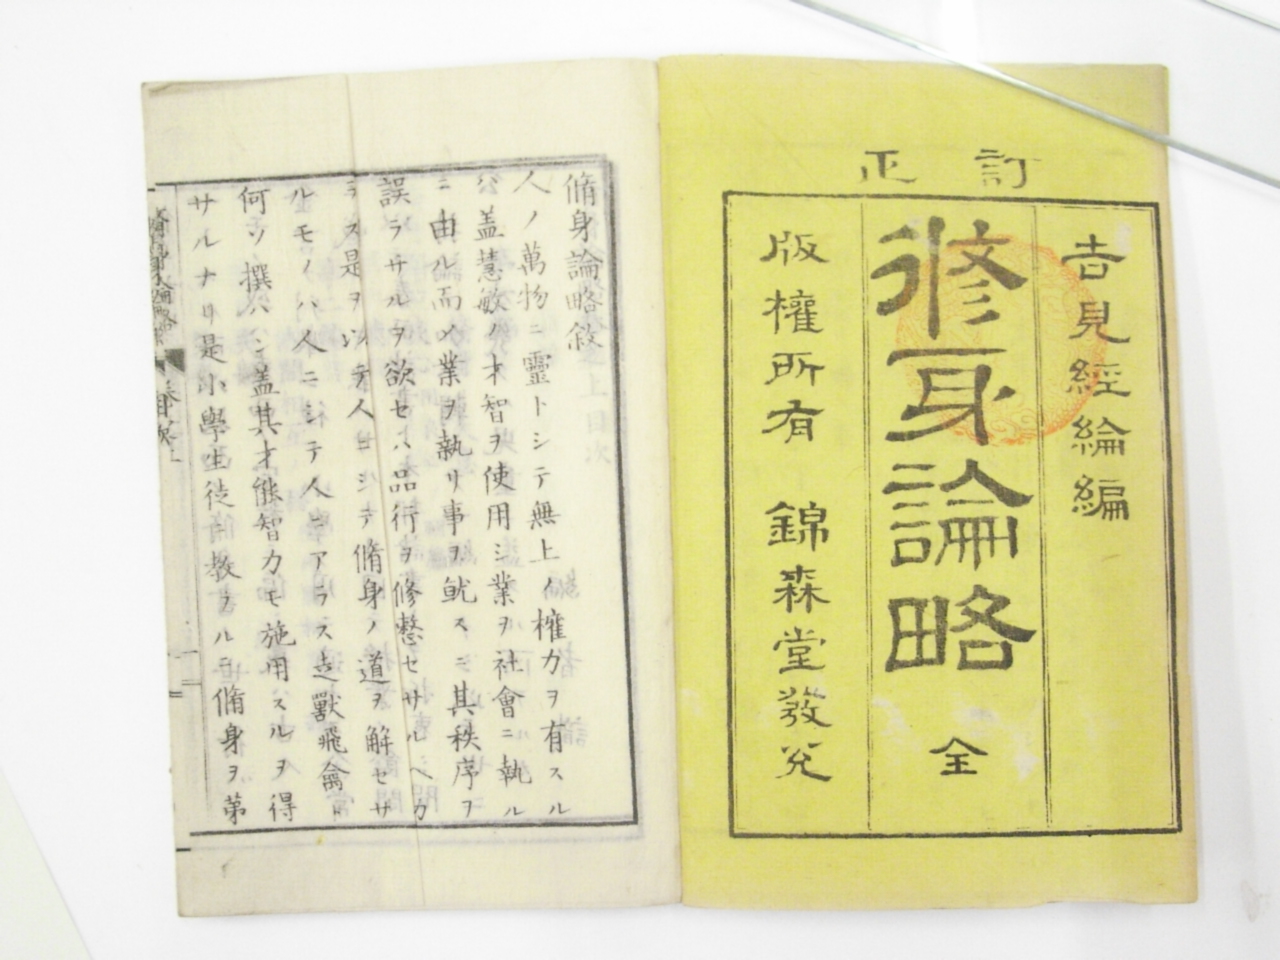 訂正
吉見經綸編
修身論略
全
版權所有 錦森堂發兌
脩身論略敘
人ノ萬物ニ靈トシテ無上ノ權力ヲ有スル
公盖慧敏ノ才智ヲ使用シ業ヲ社會ニ執ル
ニ由ル而メ業ヲ執リ事ヲ就スニ其秩序ヲ
誤ラサルヲ欲セハ品行ヲ修整セサルヘカ
ラス是ヲ以テ人ニシテ脩身ノ道ヲ解セサ
ルモノハ人ニシテ人ニアラス走獸飛禽ト
何ソ撰ハン盖其才能智力モ施用スルヲ得
サルナリ是小學生徒ニ教フルニ脩身ヲ第